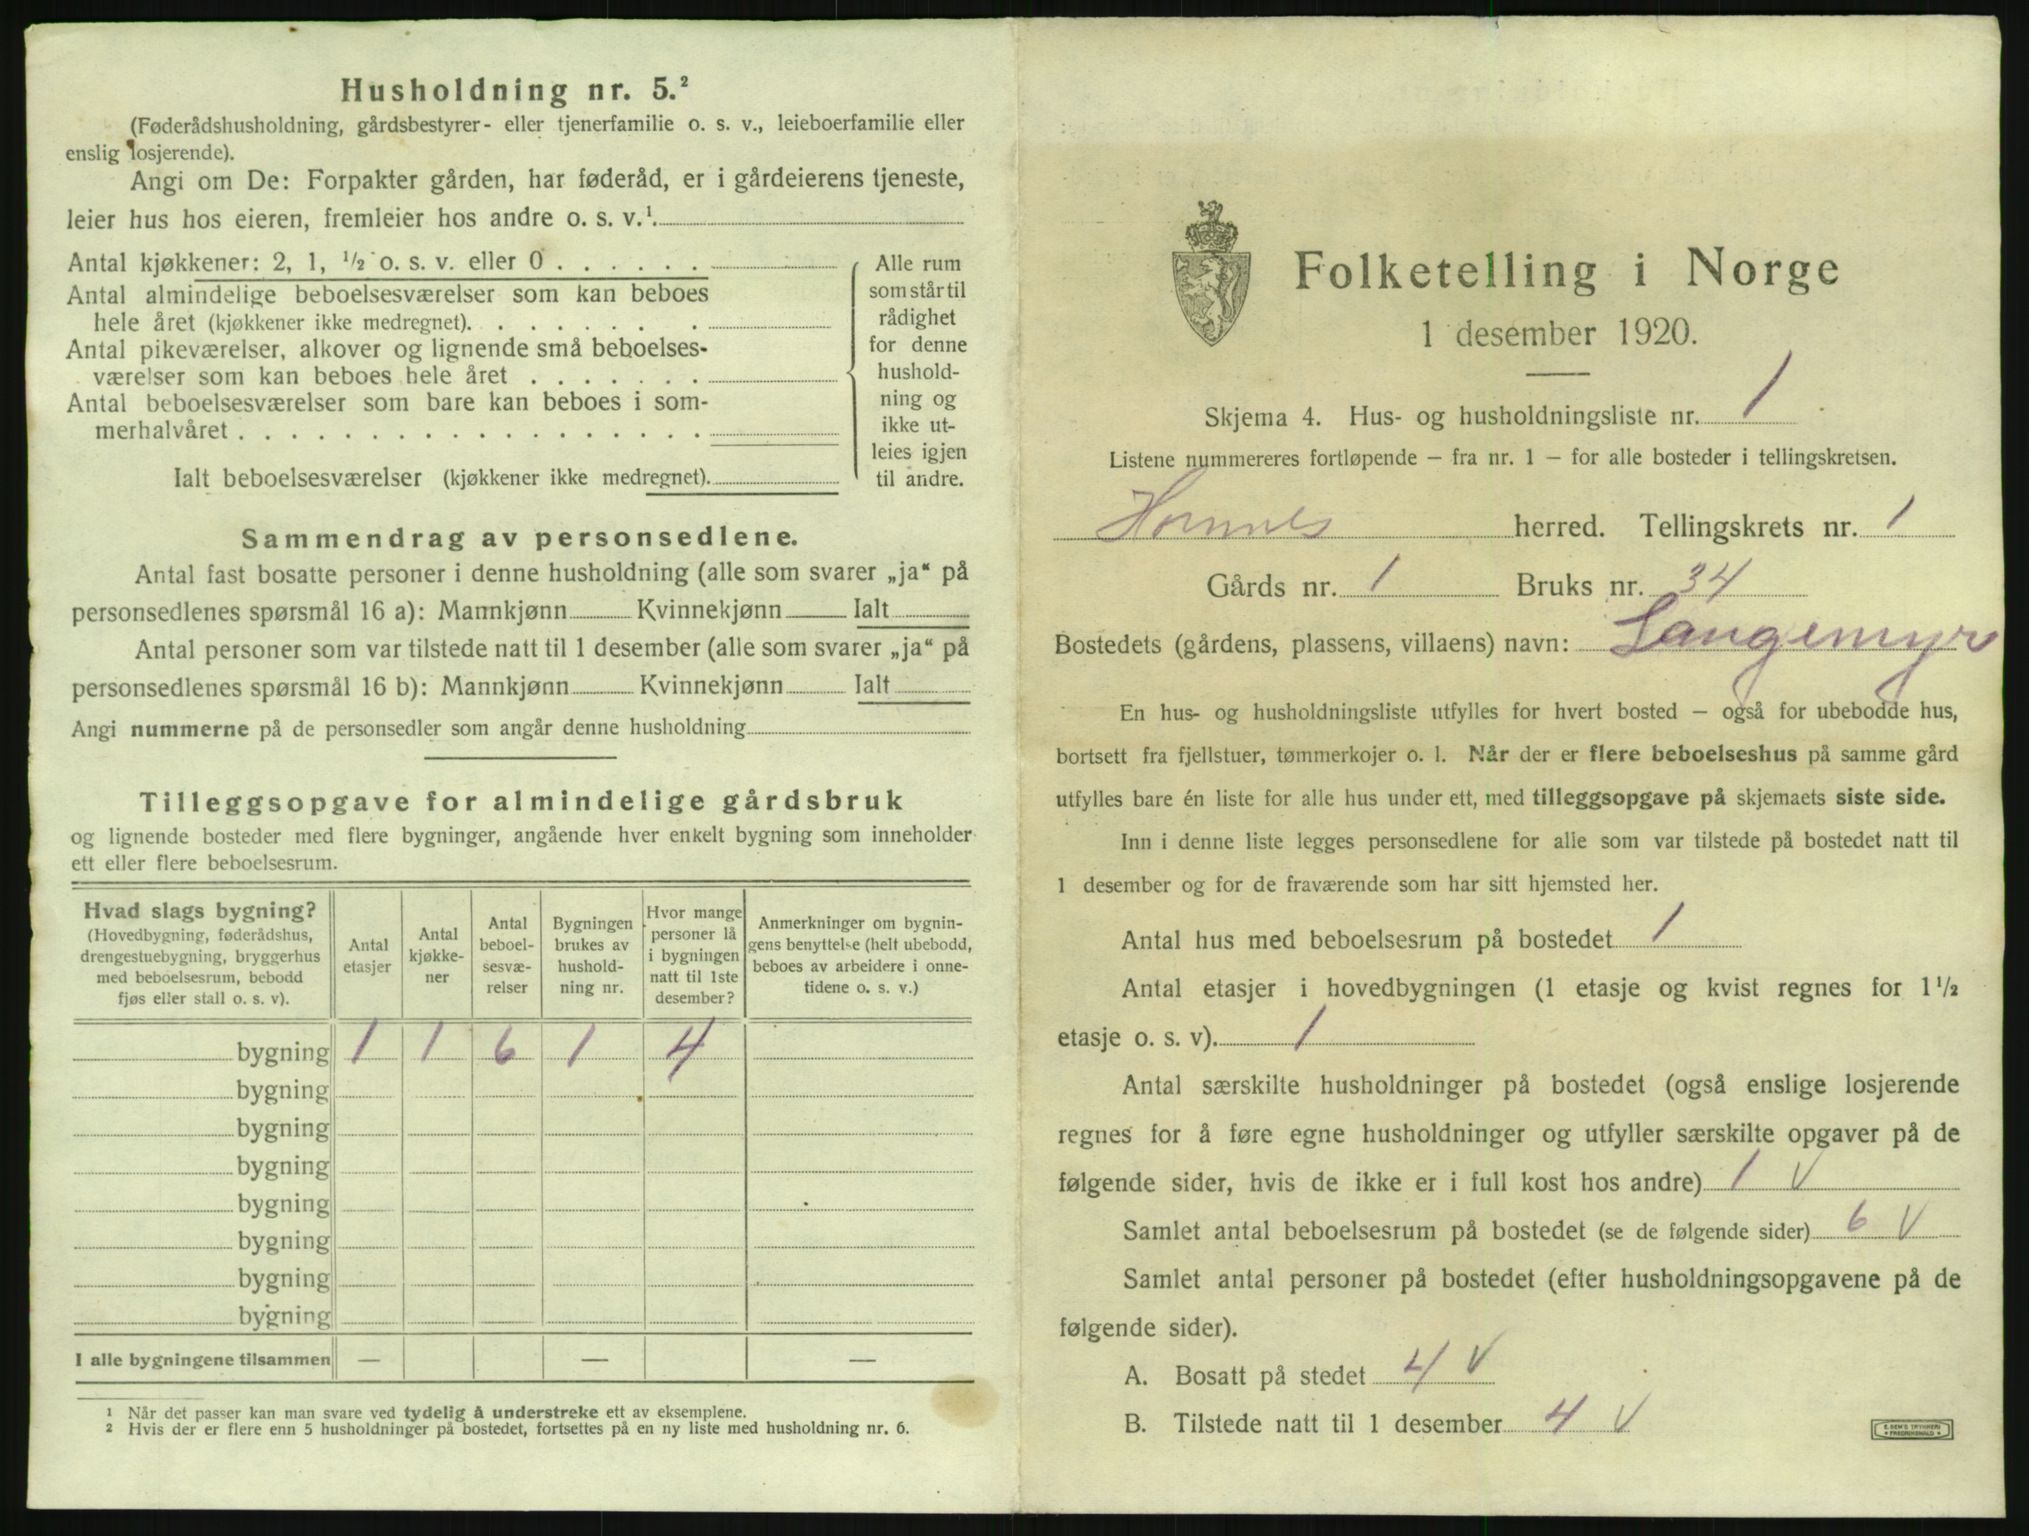 Husholdning nr. 5.²
(Føderådshusholdning, gårdsbestyrer- eller tjenerfamilie o. s. v., leieboerfamilie eller
enslig losjerende).
Angi om De: Forpakter gården, har føderåd, er i gårdeierens tjeneste,
leier hus hos eieren, fremleier hos andre o. s. v.¹
Antal kjøkkener: 2, 1, ½ o. s. v. eller 0 . . . . . .
Antal almindelige beboelsesværelser som kan beboes
hele året (kjøkkener ikke medregnet). . . . . . . . .
Antal pikeværelser, alkover og lignende små beboelses-
værelser som kan beboes hele året . . . . . . .
Antal beboelsesværelser som bare kan beboes i som-
merhalvåret . . . . . . . . . . . . . . . . . .
Ialt beboelsesværelser (kjøkkener ikke medregnet).
Alle rum
som står til
rådighet
for denne
hushold-
ning og
ikke ut-
leies igjen
til andre.
Sammendrag av personsedlene.
Antal fast bosatte personer i denne husholdning (alle som svarer „ja“ på
personsedlenes spørsmål 16 a): Mannkjønn Kvinnekjønn Ialt
Antal personer som var tilstede natt til 1 desember (alle som svarer „ja“ på
personsedlenes spørsmål 16 b): Mannkjønn Kvinnekjønn Ialt
Angi nummerne på de personsedler som angår denne husholdning
Tilleggsopgave for almindelige gårdsbruk
og lignende bosteder med flere bygninger, angående hver enkelt bygning som inneholder
ett eller flere beboelsesrum.
Hvad slags bygning?
(Hovedbygning, føderådshus,
drengestuebygning, bryggerhus
med beboelsesrum, bebodd
fjøs eller stall o. s. v).
Antal
etasjer
Antal
kjøkke-
ner
Antal
beboel-
sesvæ-
relser
Bygningen
brukes av
hushold-
ning nr.
Hvor mange
personer lå
i bygningen
natt til 1ste
desember?
Anmerkninger om bygnin-
gens benyttelse (helt ubebodd,
beboes av arbeidere i onne-
tidene o. s. v.)
bygning 1 1 6 1 4
bygning
bygning
bygning
bygning
bygning
bygning
bygning
I alle bygningene tilsammen — — —
¹ Når det passer kan man svare ved tydelig å understreke ett av eksemplene.
² Hvis der er flere enn 5 husholdninger på bostedet, fortsettes på en ny liste med husholdning nr. 6.
Folketelling i Norge
1 desember 1920.
Skjema 4. Hus- og husholdningsliste nr. 1
Listene nummereres fortløpende — fra nr. 1 — for alle bosteder i tellingskretsen.
Hornnes herred. Tellingskrets nr. 1
Gårds nr. 1 Bruks nr. 34
Bostedets (gårdens, plassens, villaens) navn: Langemyr
En hus- og husholdningsliste utfylles for hvert bosted — også for ubebodde hus,
bortsett fra fjellstuer, tømmerkojer o. l. Når der er flere beboelseshus på samme gård
utfylles bare én liste for alle hus under ett, med tilleggsopgave på skjemaets siste side.
Inn i denne liste legges personsedlene for alle som var tilstede på bostedet natt til
1 desember og for de fraværende som har sitt hjemsted her.
Antal hus med beboelsesrum på bostedet 1
Antal etasjer i hovedbygningen (1 etasje og kvist regnes for 1½
etasje o. s. v). 1
Antal særskilte husholdninger på bostedet (også enslige losjerende
regnes for å føre egne husholdninger og utfyller særskilte opgaver på de
følgende sider, hvis de ikke er i full kost hos andre) 1 V
Samlet antal beboelsesrum på bostedet (se de følgende sider) 6 V
Samlet antal personer på bostedet (efter husholdningsopgavene på de
følgende sider).
A. Bosatt på stedet 4 V
B. Tilstede natt til 1 desember 4 V
E. SEM'S TRYKKERI
FREDRIKSHALD